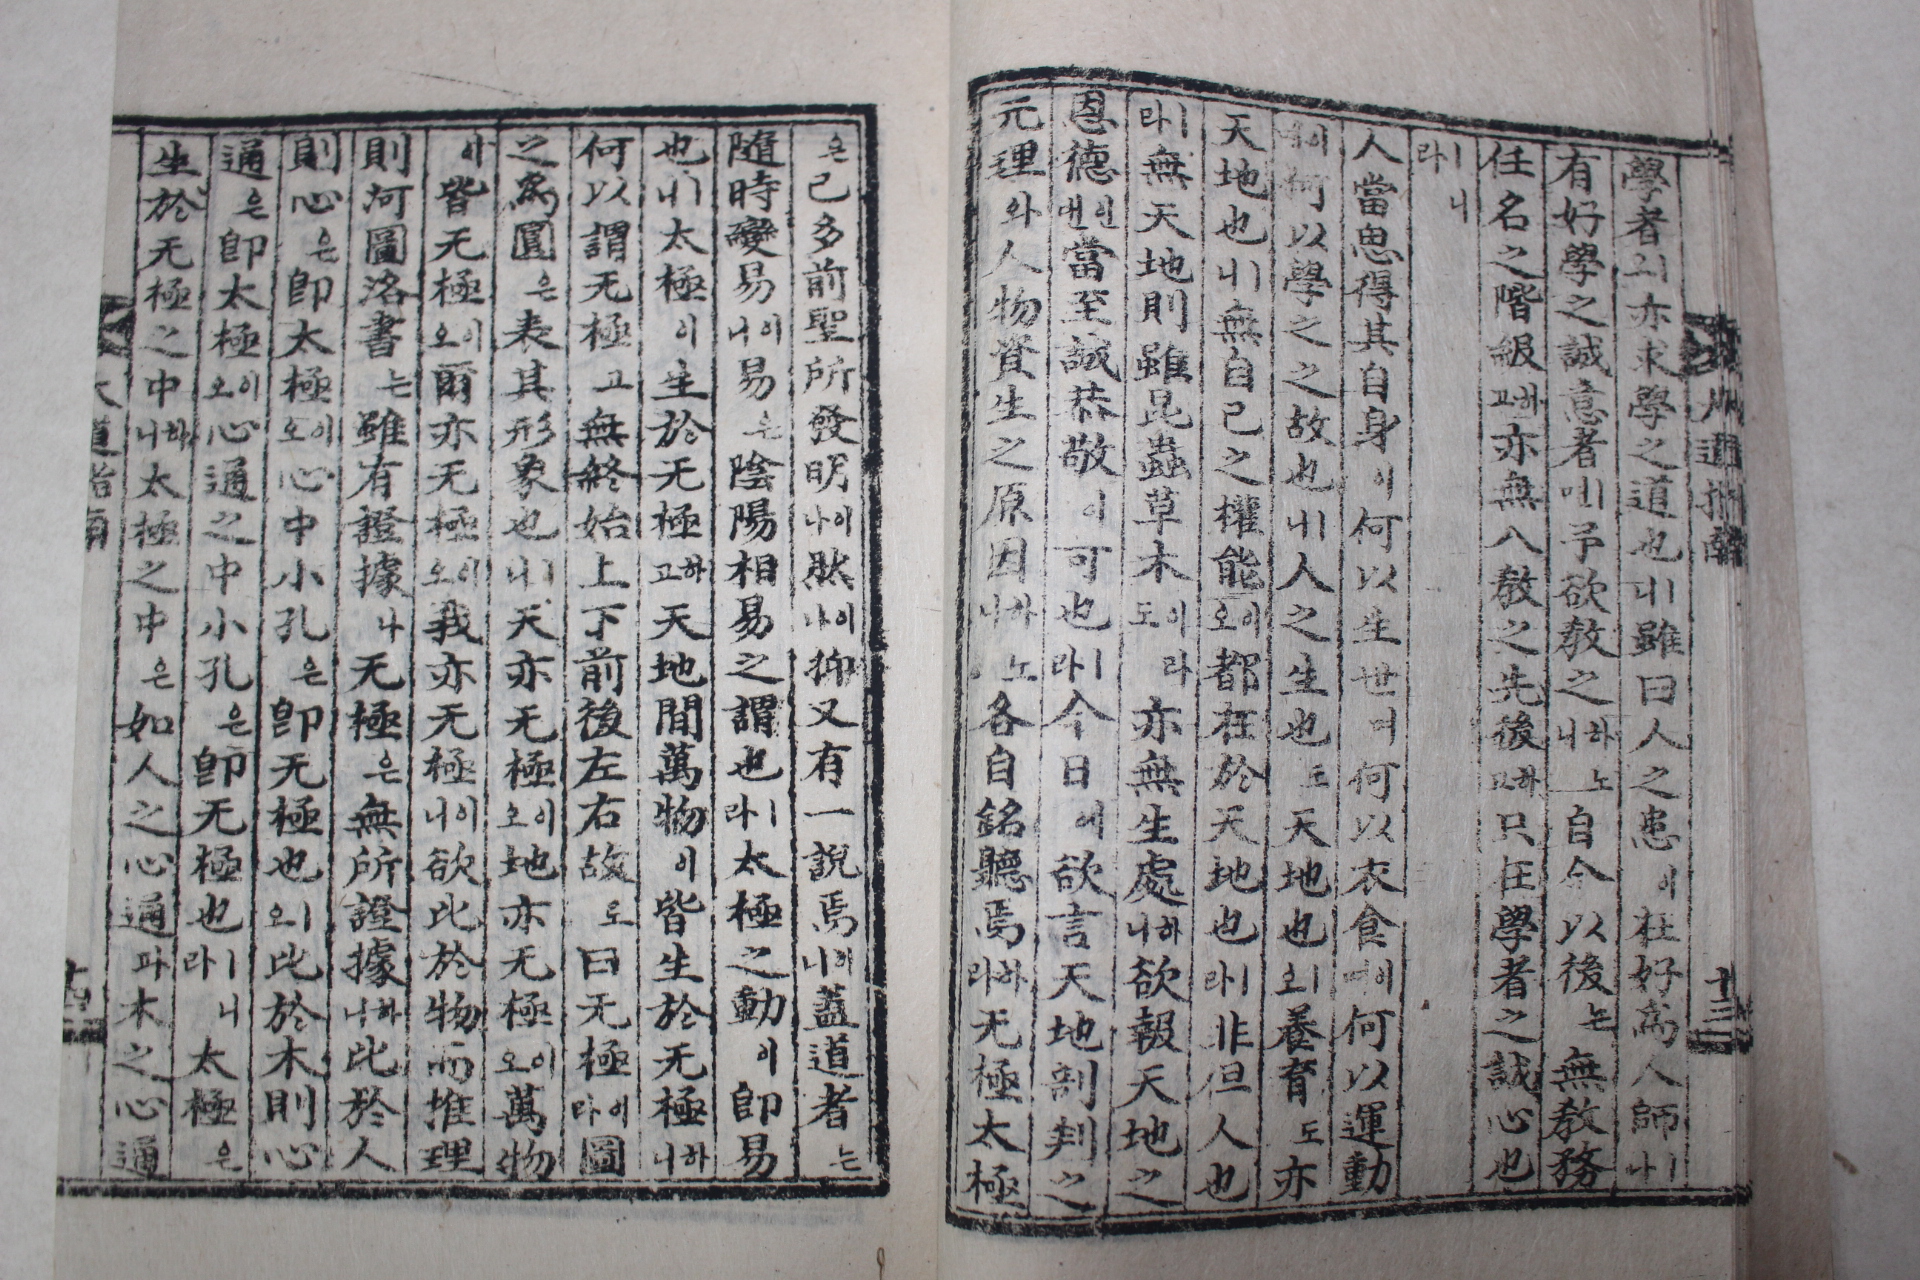 十三
學者ㅣ亦求學之道也ㅣ니雖曰人之患이在好爲人師ㅣ나
有好學之誠意者ㅣ면予欲敎之하노니自今以後는無敎務
任名之階級하고亦無入敎之先後하고只在學者之誠心也
ㅣ니라
人當思得其自身이何以生世며何以衣食이며何以運動
이며何以學之之故也ㅣ니人之生也도天地也ㅣ오養育도亦
天地也ㅣ니無自己之權能이오都在於天地也ㅣ라非但人也
ㅣ라無天地則雖昆蟲草木이라도亦無生處하니欲報天地之
恩德인댄當至誠恭敬이可也ㅣ라今日에欲言天地剖判之
元理와人物資生之原因하노니各自銘聽焉하라无極太極
은已多前聖所發明이나然이나抑又有一說焉이니蓋道者는
隨時變易이니易은陰陽相易之謂也ㅣ라太極之動이卽易
也ㅣ니太極이生於无極하고天地間萬物이皆生於无極하니
何以謂无極고無終始上下前後左右故로曰无極이라圖
之爲圓은表其形象也ㅣ니天亦无極이오地亦无極이오萬物
이皆无極이오爾亦无極이오我亦无極이니欲此於物而推理
則河圖洛書는雖有證據나无極은無所證據하니此於人
則心은卽太極이오心中小孔은卽无極也ㅣ오此於木則心
通은卽太極이오心通之中小孔은卽无極也ㅣ니라太極은
生於无極之中하니太極之中은如人之心通과木之心通
大道
十四